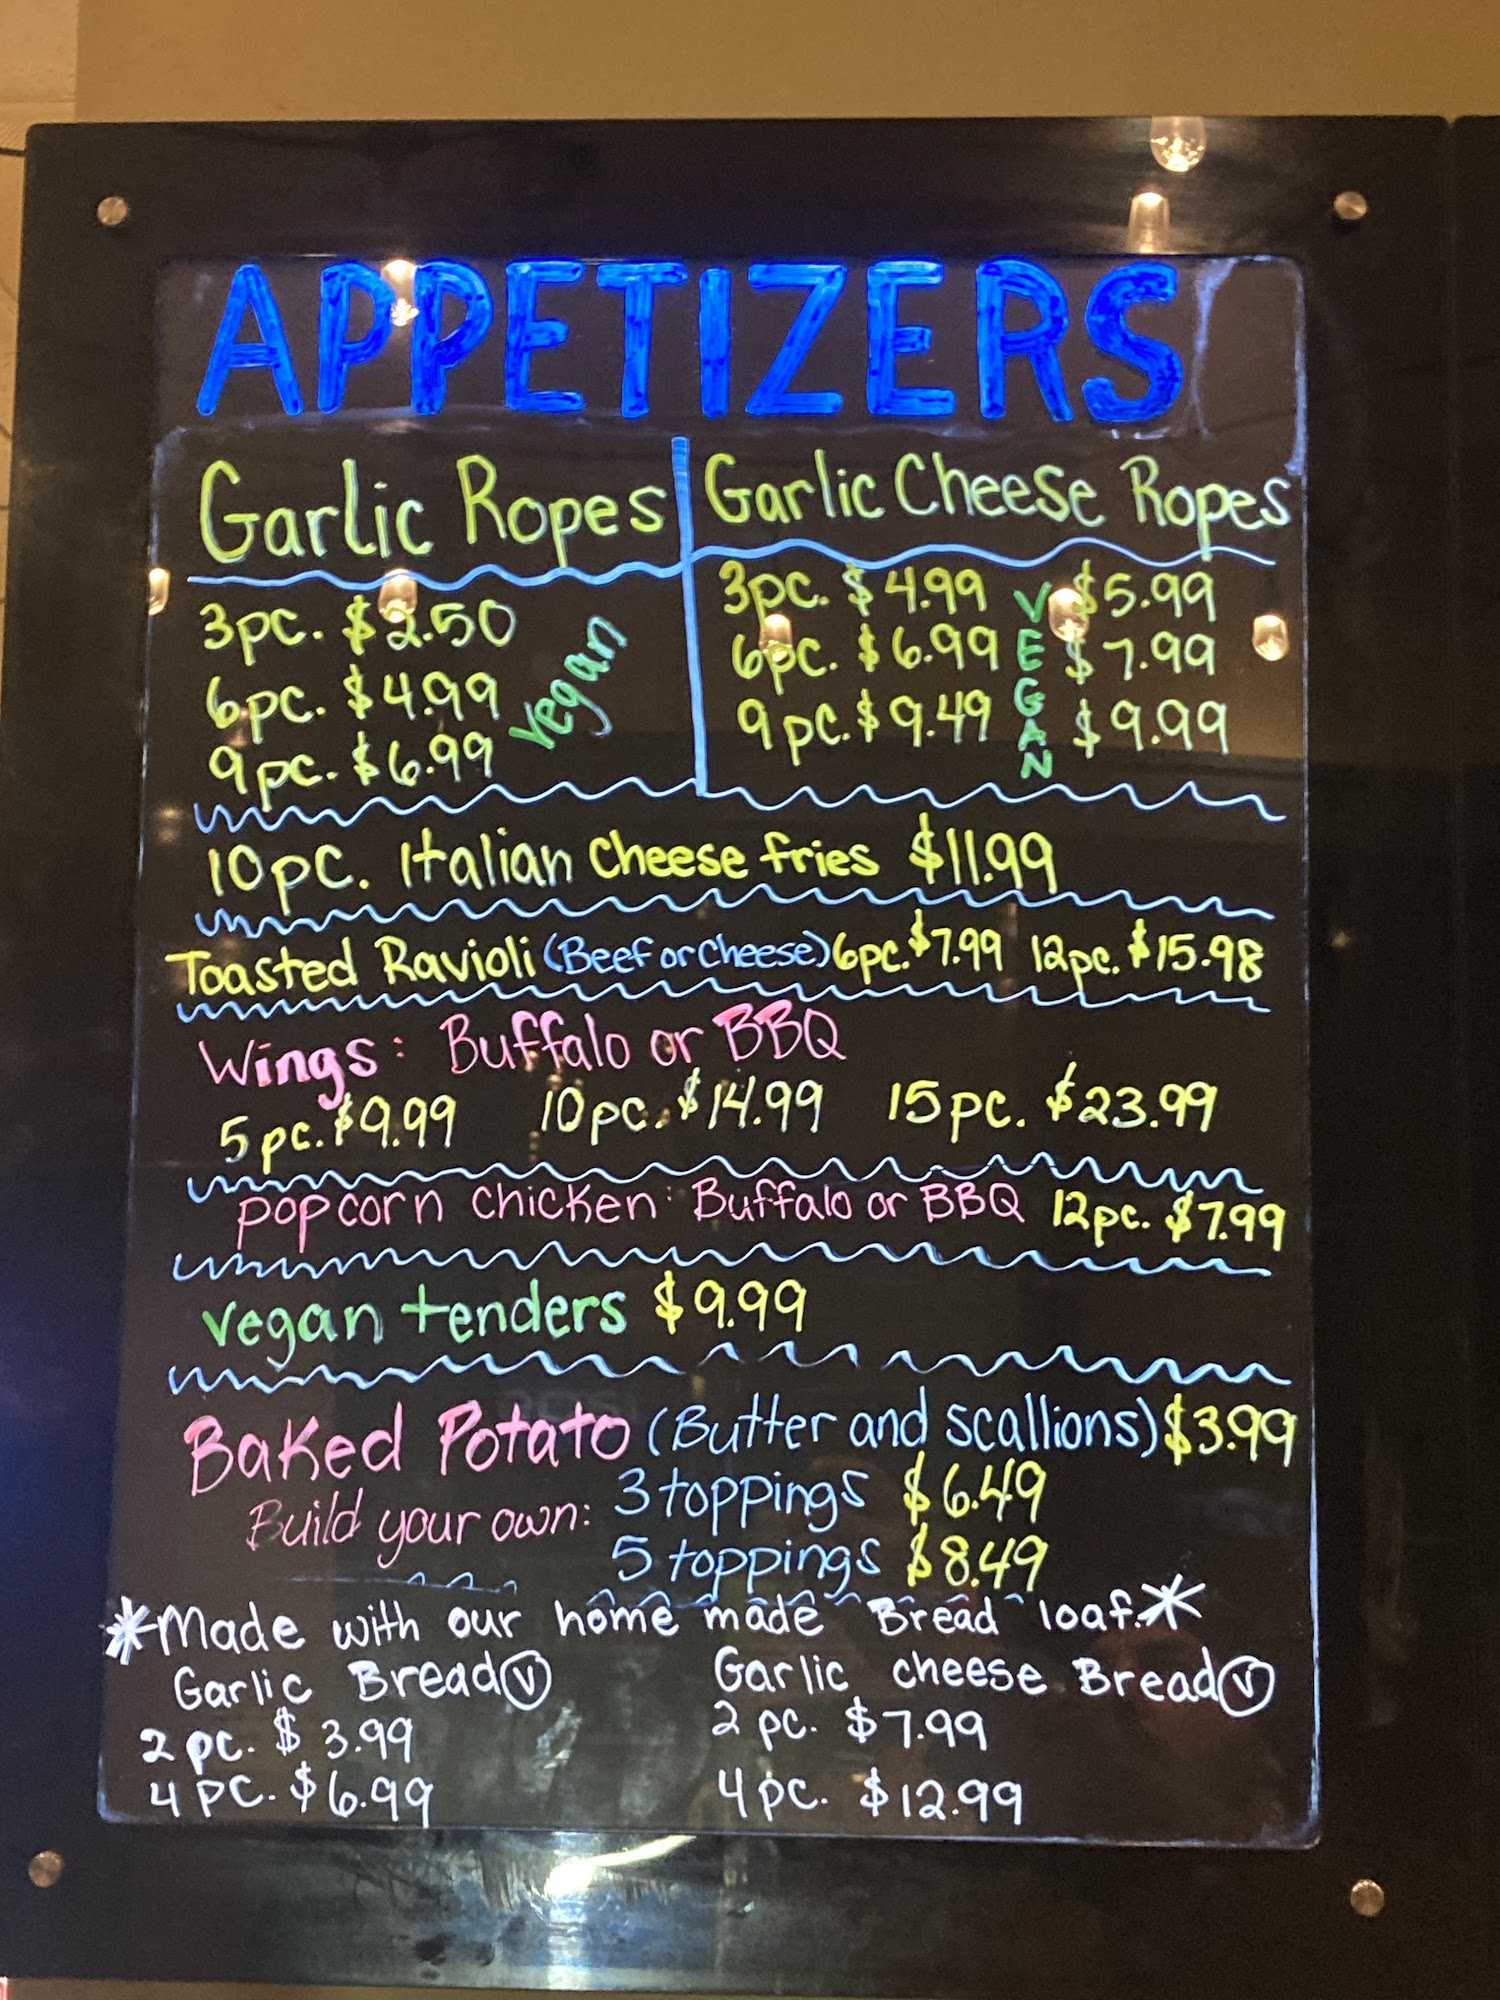 APPETIZERS
Garlic Ropes
3pc. $2.50
6pc. $4.99
9pc. $6.99
vegan
Garlic Cheese Ropes
3pc. $4.99 $5.99
6pc. $6.99 $7.99
9pc. $9.49 $9.99
VEGAN
10pc. Italian Cheese fries $11.99
Toasted Ravioli (Beef or Cheese) 6pc. $7.99 12pc. $15.98
Wings: Buffalo or BBQ
5pc. $9.99 10pc. $14.99 15pc. $23.99
popcorn chicken: Buffalo or BBQ 12pc. $7.99
vegan tenders $9.99
Baked Potato (Butter and scallions) $3.99
Build your own: 3 toppings $6.49
5 toppings $8.49
*Made with our home made Bread loaf.*
Garlic Bread Ⓥ
2 pc. $3.99
4 PC. $6.99
Garlic cheese Bread Ⓥ
2 pc. $7.99
4pc. $12.99